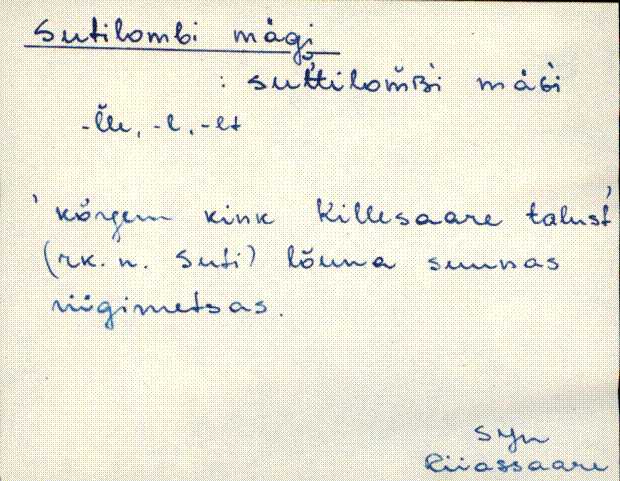 Sutilombi mägi
: suttilomʙi mäɢi
-l̆le, -l, -lt
'kõrgem kink Killesaare talust'
(rk. n. Suti) lõuna suunas
riigimetsas.
Syn